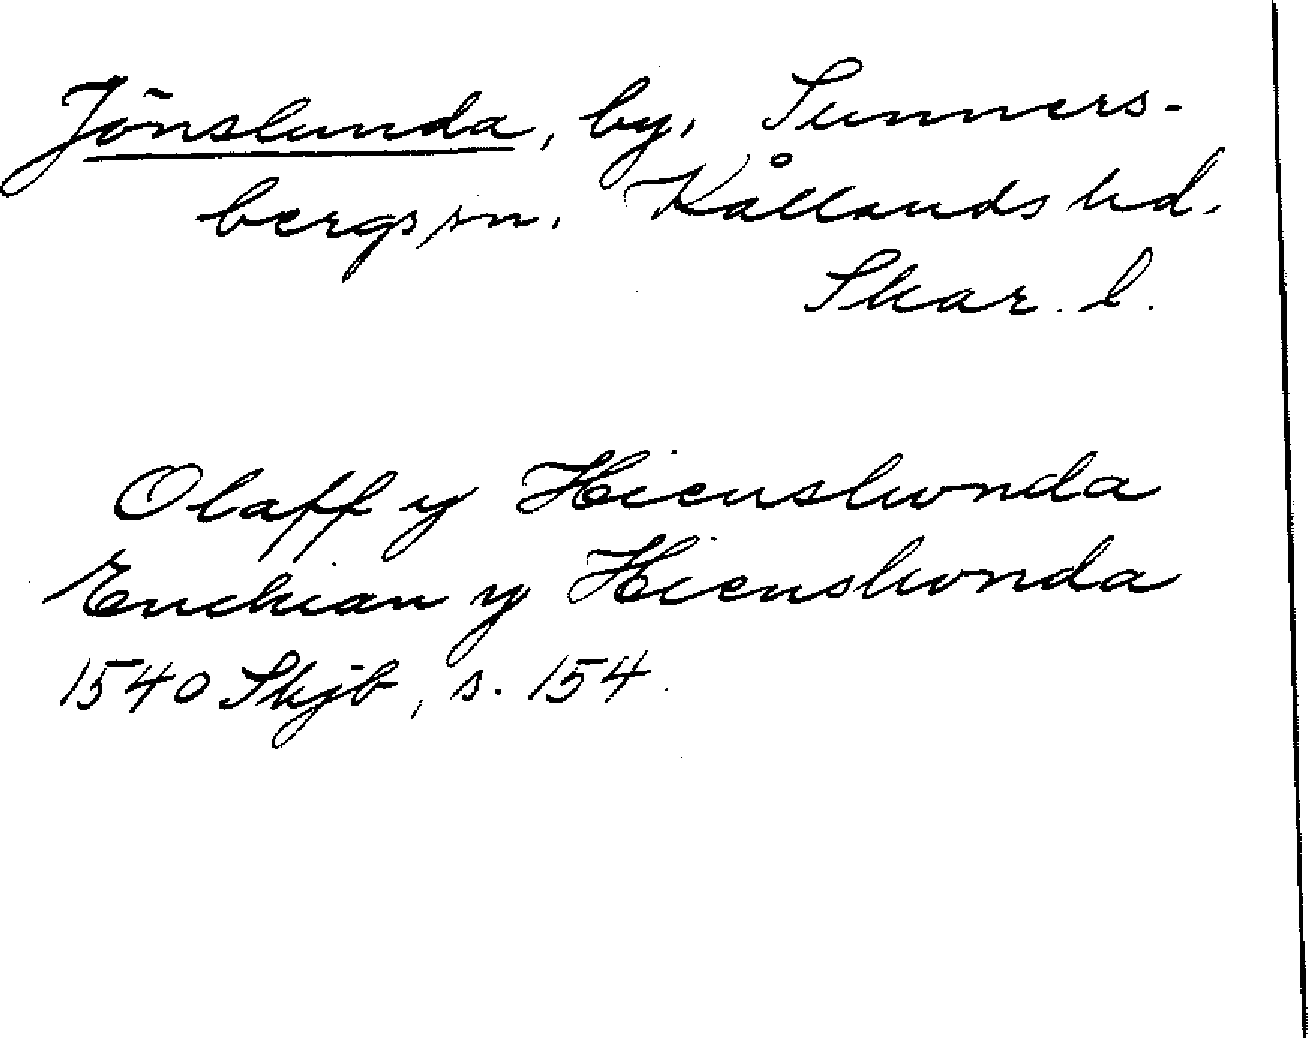 Jönslunda, by, Sunners-
bergs sn. Kållands hd.
Skar. l.
Olaff y Hienslwnda
Enckian y Hienslwnda
1540 Skjb, s. 154.